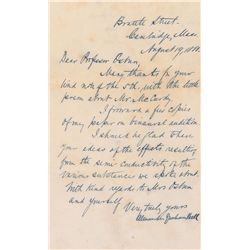 Brattle Street.
Cambridge, Mass.
August 19, 18
Dear Professor Osborn
Many thanks for your
kind note of the 5th, with the little
poem about Mr. McCurdy.
I forward a few copies
of my paper on binaural audition.
I should be glad to have
your ideas of the effects resulting
from the semi conductivity of the
various substances we spoke about.
With kind regards to Mrs Osborn
and yourself
Very truly yours
Alexander Graham Bell